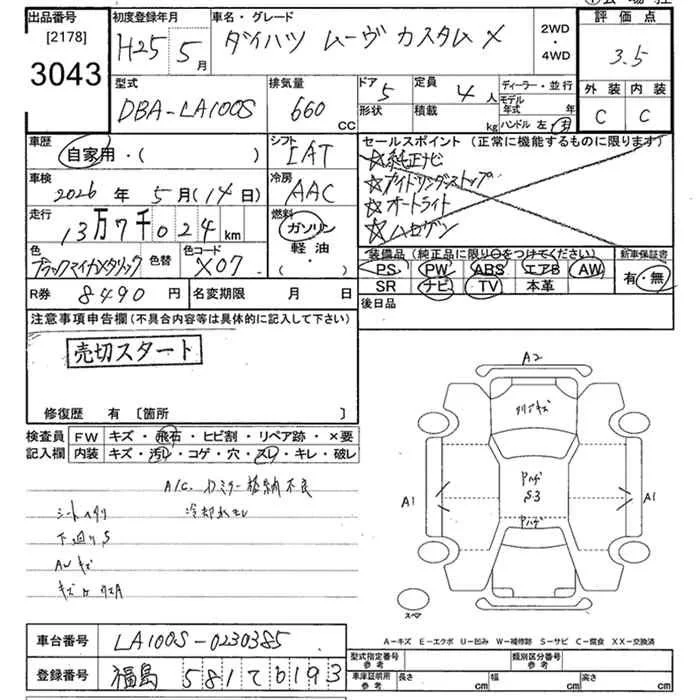 出品番号
[2178]
3043
初度登録年月
H25 5月
車名・グレード
ダイハツ ムーヴ カスタム X
2WD
・
4WD
評価点
3.5
外装 内装
C C
型式
DBA-LA100S
排気量
660
CC
ドア
5
形状
定員
4人
積載
kg
ディーラー・並行
モデル
年式 年
ハンドル 左・右
車歴
自家用・( )
シフト
IAT
セールスポイント(正常に機能するものに限ります)
☆純正ナビ
☆アイドリングストップ
☆オートライト
☆ハロゲン
車検
2026年 5月(14日)
冷房
AAC
走行
13万7千024km
燃料
ガソリン
軽油・
( )
色
ブラックマイカメタリック
色替
色コード
X07
装備品(純正品に限り○をつけてください)
新車保証書
PS PW ABS エアB AW
SR ナビ TV 本革
有・無
R券 8490円
名変期限 月 日
後日品
注意事項申告欄(不具合内容等は具体的に記入して下さい)
売切スタート
修復歴 有 [箇所 ]
検査員
記入欄
FW キズ・飛石・ヒビ割・リペア跡・×要
内装 キズ・汚レ・コゲ・穴・スレ・キレ・破レ
A/C. Dミラー格納不良
シートヘタリ 冷却水モレ
下廻りS
AWキズ
A2
A1
A1
Pハゲ
S3
Pハゲ
スペア
A-キズ E-エクボ U-凹み W-補修跡 S-サビ C-腐食 XX-交換済
車台番号 LA100S-0230385
登録番号 福島 581 て 6193
型式指定番号
参考
類別区分番号
参考
車庫証明用
参考
長さ cm
幅 cm
高さ cm